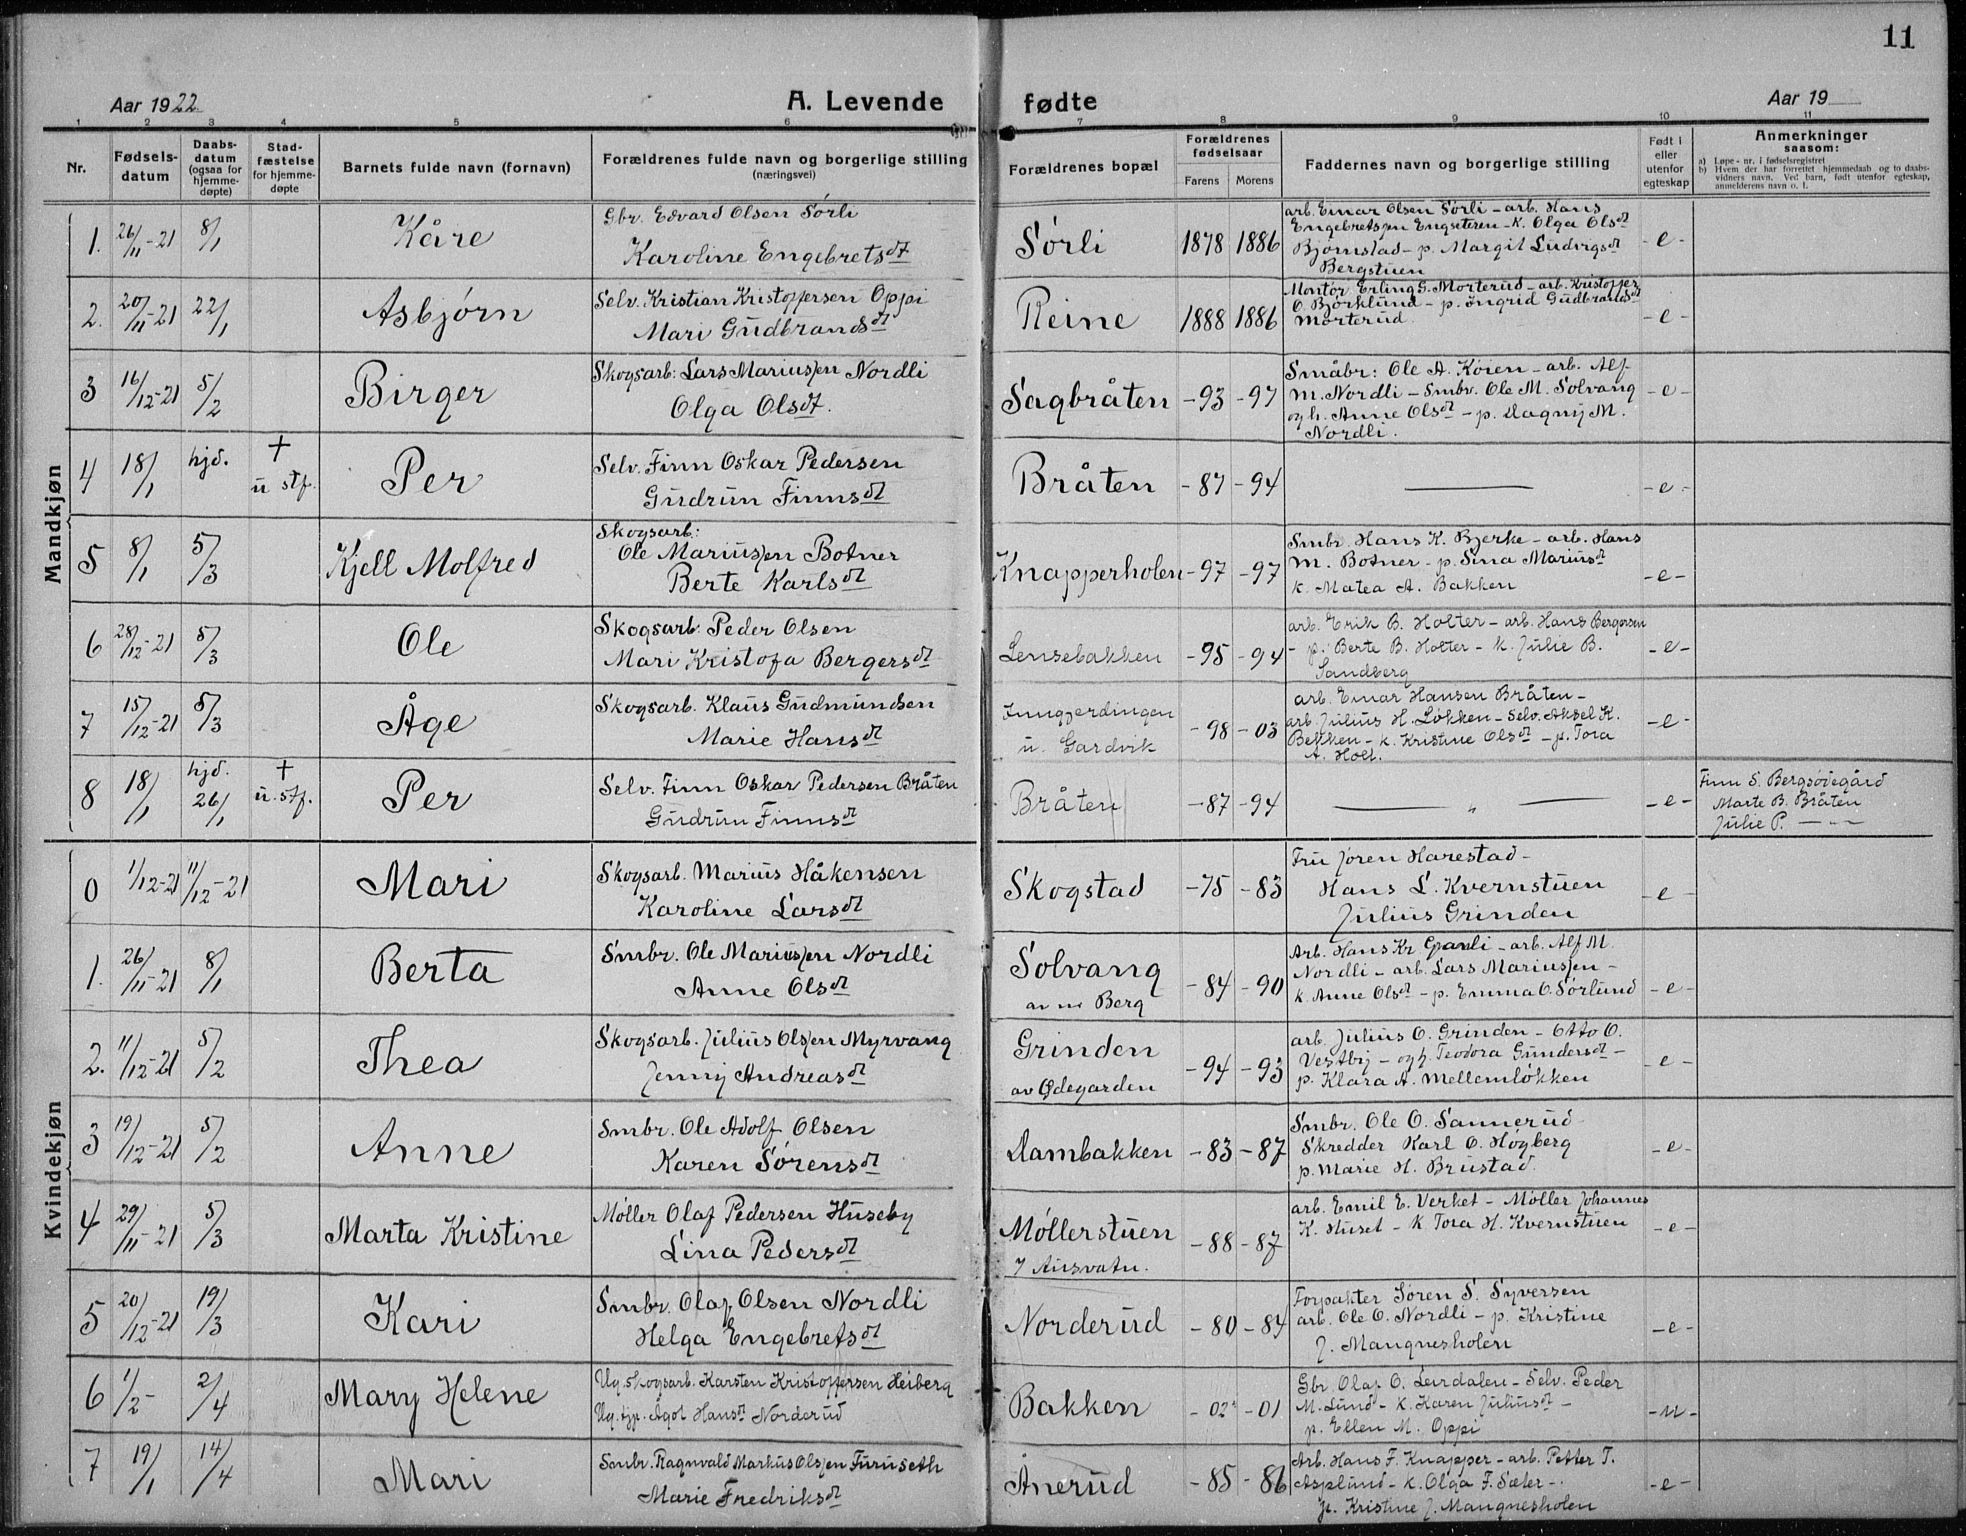 11
Aar 1922
A. Levende fødte
Aar 19
1 2 3 4 5 6 7 8 9 10 11
Nr. Fødselsdatum Daabsdatum (ogsaa for hjemmedøpte) Stadfæstelse for hjemmedøpte Barnets fulde navn (fornavn) Forældrenes fulde navn og borgerlige stilling (næringsvei) Forældrenes bopæl Forældrenes fødselsaar Farens Morens Faddernes navn og borgerlige stilling Født i eller utenfor egteskap Anmerkninger saasom:
a) Løpe-nr. i fødselsregistret
b) Hvem der har forrettet hjemmedaab og to daabsvidners navn. Ved barn, født utenfor egteskap, anmelderens navn o. l.
Mandkjøn
1. 26/11-21 8/1 Kåre Gbr. Edvard Olsen Sørli
Karoline Engebretsdt Sørli 1878 1886 arb. Einar Olsen Sørli – arb. Hans
Engebretsen Engseteren – k. Olga Olsdt
Bjørnstad – p. Margit Ludvigsdt
Bergstuen - e -
2. 20/11-21 22/1 Asbjørn Selv. Kristian Kristoffersen Oppi
Mari Gudbrandsdt Reine 1888 1886 Montør Erling G. Morterud – arb. Kristoffer
O. Bjørklund – p. Ingrid Gudbrandsdt
Morterud. - e -
3 16/12-21 5/2 Birger Skogsarb: Lars Mariussen Nordli
Olga Olsdt. Sagbråten -93 -97 Småbr: Ole A. Køien – arb. Alf
M. Nordli – Smbr. Ole M. Solvang
og h. Anne Olsdt – p. Dagny M.
Nordli. - e -
4 18/1 hjd. + u stf. Per Selv. Finn Oskar Pedersen
Gudrun Finnsdt Bråten -87 -94 — - e -
5 8/1 5/3 Kjell Molfred Skogsarb:
Ole Mariussen Botner
Berte Karlsdt Knapperholen -97 -97 Smbr. Hans K. Bjerke – arb. Hans
M. Botner – p. Sina Mariusdt
k. Matea A. Bakken - e -
6 28/12-21 5/3 Ole Skogsarb: Peder Olsen
Mari Kristofa Bergersdt Lensebakken -95 -94 arb. Erik B. Holter – arb. Hans Bergersen
– p. Berte B. Holter – k. Julie B.
Sandberg - e -
7 15/12-21 5/3 Åge Skogsarb. Klaus Gudmundsen
Marie Hansdt Inngjerdingen
u. Gardvik -98 -03 arb. Einar Hansen Bråten –
arb. Julius H. Løkken – Selv. Aksel K.
Bekken – k. Kristine Olsdt – p. Tora
A. Holt. - e -
8 18/1 hjd. 26/1 + u. stf. Per Selv. Finn Oskar Pedersen Bråten
Gudrun Finnsdt Bråten -87 -94 — „ — - e - Finn S. Bergsødegård
Marte B. Bråten
Julie P. — „ —
Kvindekjøn
0 1/12-21 11/12-21 Mari Skogsarb. Marius Håkensen
Karoline Larsdt Skogstad -75 -83 Fru Jøren Harestad –
Hans L. Kvernstuen
Julius Grinden - e -
1. 26/11-21 8/1 Berta Smbr. Ole Mariussen Nordli
Anne Olsdt Solvang
av Berg -84 -90 Arb. Hans Kr. Granli – arb. Alf M.
Nordli – arb. Lars Mariussen –
k. Anne Olsdt – p. Emma O. Sørlund - e -
2. 11/12-21 5/2 Thea Skogsarb. Julius Olsen Myrvang
Jenny Andreasdt Grinden
av Ødegarden -94 -93 arb. Julius O. Grinden – Otto O.
Vestby – og h. Teodora Gundersdt –
p. Klara A. Mellemløkken - e -
3 19/12-21 5/2 Anne Smbr. Ole Adolf Olsen
Karen Sørensdt Dambakken -83 -87 Smbr. Ole O. Sannerud –
Skredder Karl O. Høgberg
p. Marie H. Brustad. - e -
4 29/11-21 5/3 Marta Kristine Møller Olaf Pedersen Huseby
Lina Pedersdt Møllerstuen
i Ausvatn. -88 -87 arb. Emil E. Verket – Møller Johannes
K. Huset – k Tora H. Kvernstuen - e -
5 20/12-21 19/3 Kari Smbr. Olaf Olsen Nordli
Helga Engebretsdt Norderud -80 -84 Forpakter Søren S. Syversen
arb. Ole O. Nordli – p. Kristine
J. Mangnesholen - e -
6 1/2- 2/4 Mary Helene Ug. skogsarb. Karsten Kristoffersen Heiberg
Ug. tjp. Ågot Hansdt Norderud Bakken -02 -01 Gbr. Olaf O. Leirdalen – Selv. Peder
M. Lund – k. Karen Juliusdt –
p. Ellen M. Oppi - u -
7 19/1 14/4 Mari Smbr. Ragnvald Markus Olsen Furuseth
Marie Fredriksdt Ånerud -85 -86 Arb. Hans F. Knapper – arb. Petter T.
Asplund – k. Olga F. Sæter –
p. Kristine J. Mangnesholen - e -